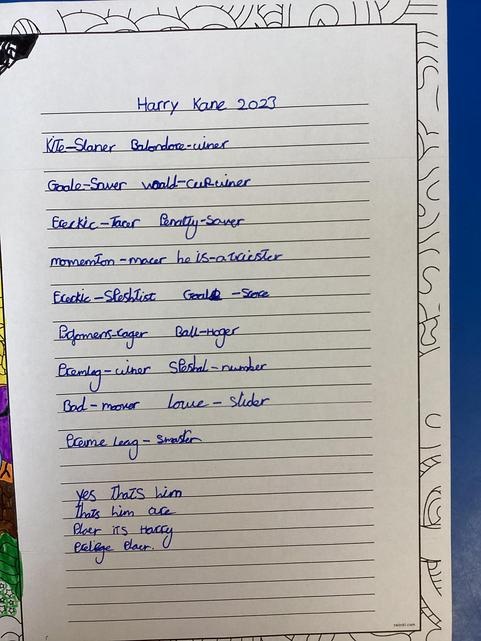 Harry Kane 2023
Kite-Slaner Balondore-winer
Goale-Saver world-cup winer
Freekic-Tacer Penalty-Saver
momention-macer he is-a tricister
Freekic-Speshlist Goale-Score
Ball-Hoger
Premleg-winer Speshal-number
Bad-moover Lowe-Slider
Preme leag-Smaster
yes thats him
thats him are
Player its Harry
Player.
twinkl.com